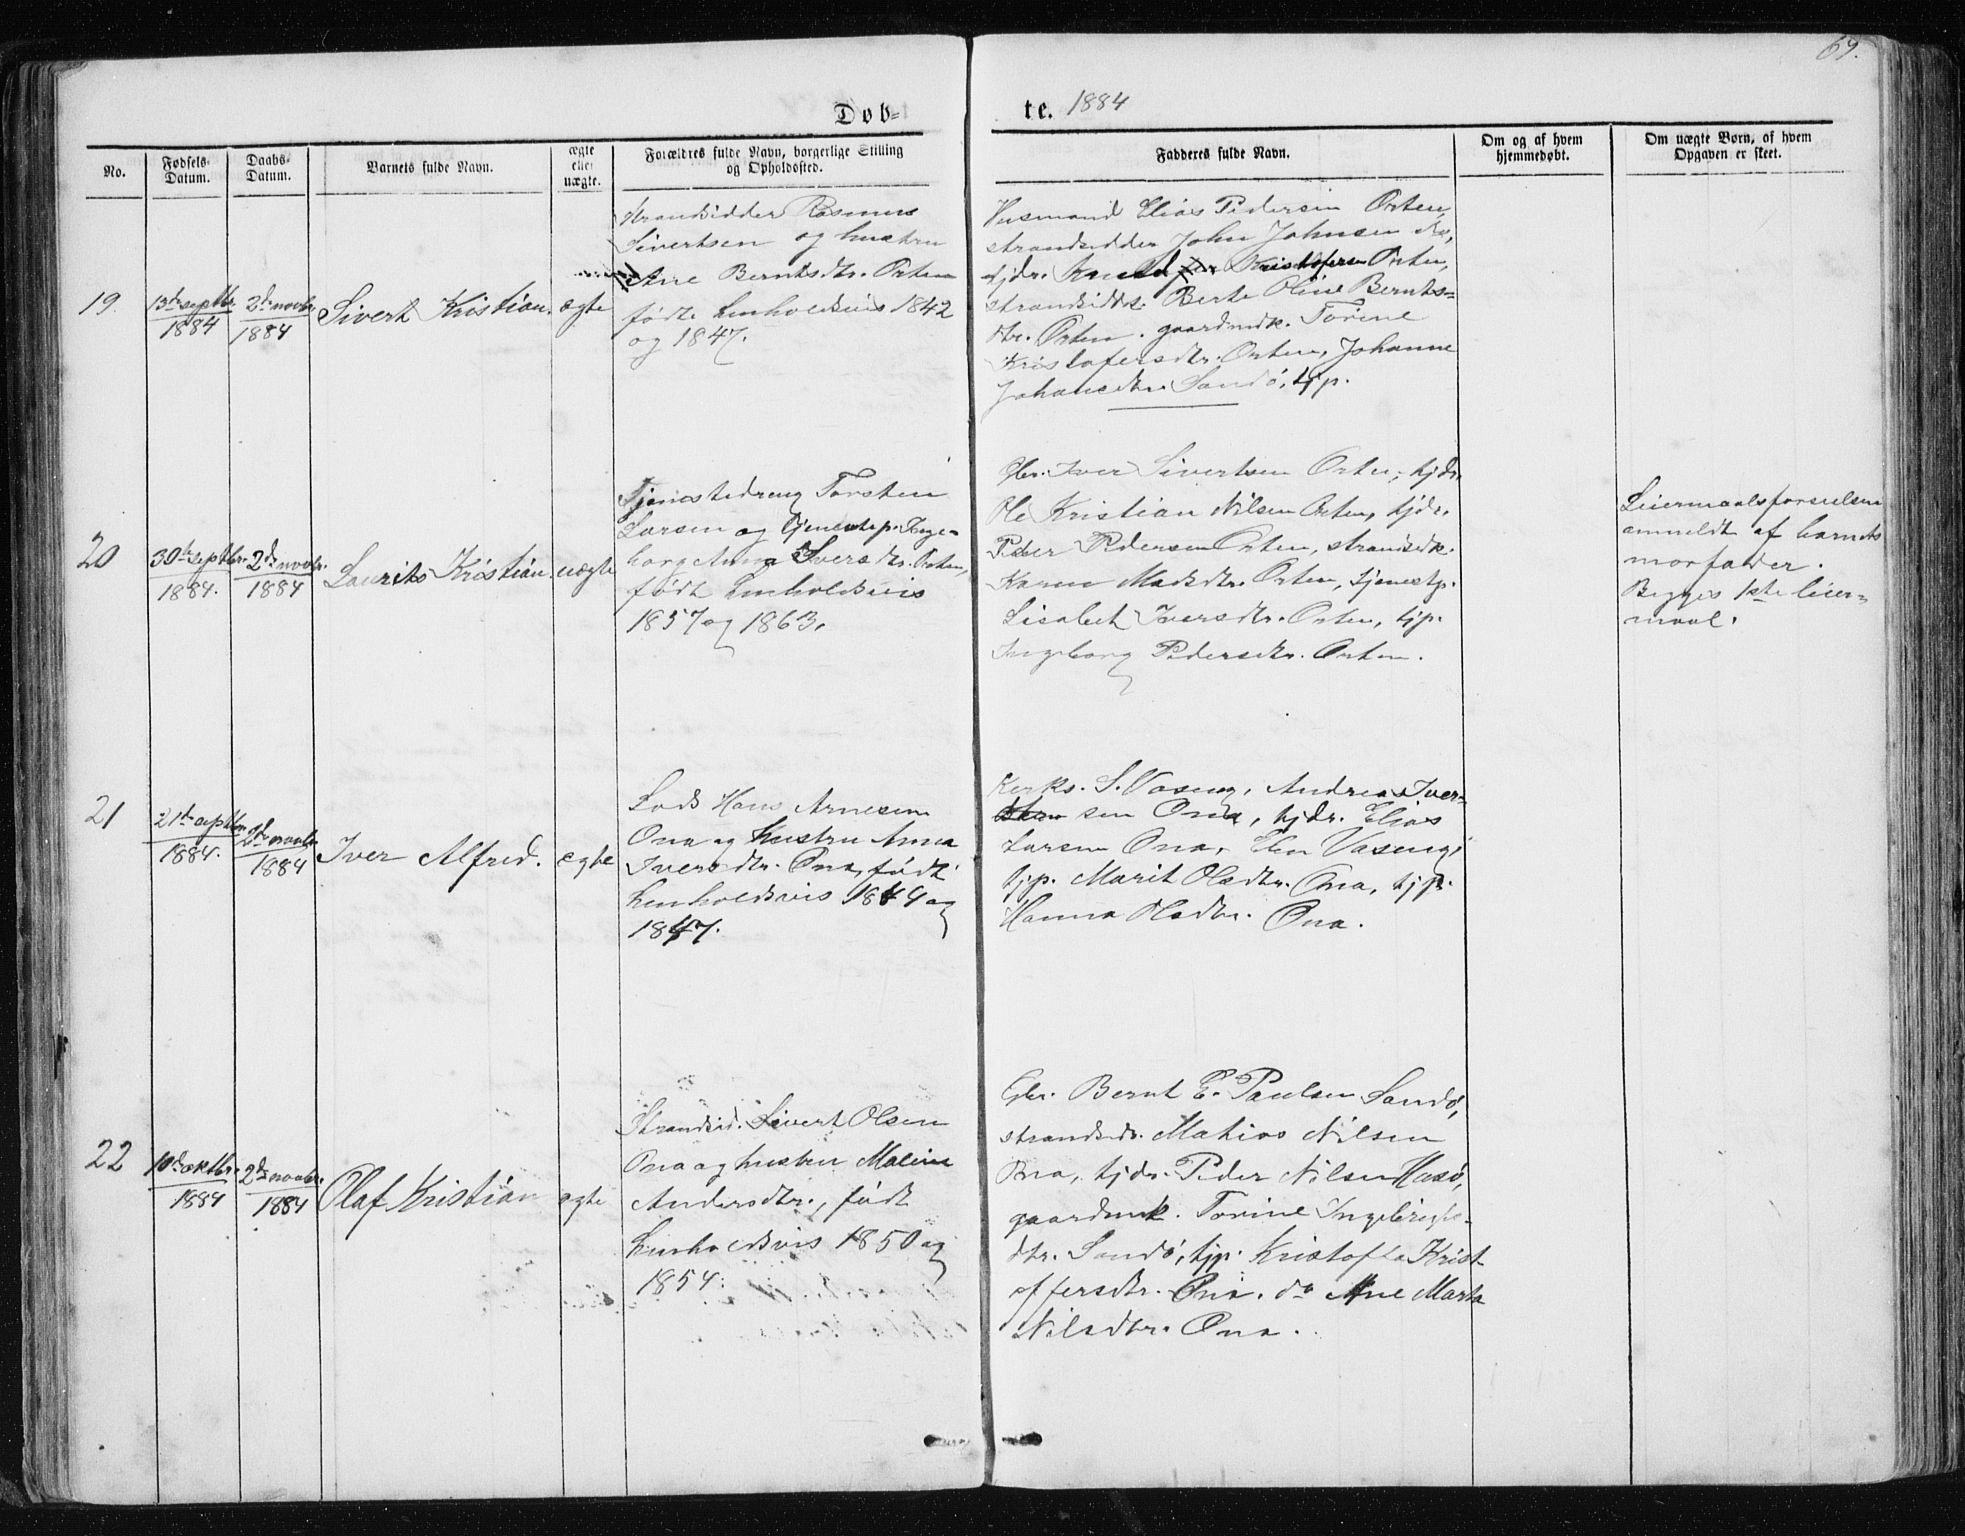 69.
Døb= te. 1884
No.
Fødsels-
Datum.
Daabs-
Datum.
Barnets fulde Navn.
ægte
eller
uægte.
Forældres fulde Navn, borgerlige Stilling
og Opholdssted.
Faddernes fulde Navn.
Om og af hvem
hjemmedøbt.
Om uægte Børn, af hvem
Opgaven er skeet.
19.
13de septbr.
1884
2de novbr.
1884
Sivert Kristian.
ægte
Strandsidder Rasmus
Sivertsen og hustru
Ane Berntsdtr. Orten
født henholdsvis 1842
og 1847.
Husmand Elias Pedersen Orten,
strandsidder John Johnsen
tjdr. Knud Kristofersen Orten,
strandsidk. Berte Oline Bernts=
dtr. Orten. gaardmdk. Torine
Kristofersdtr. Orten, Johanne
Johansdtr. Sandø, tjp.
20
30te septbr.
1884.
2de novbr.
1884
Laurits Kristian.
uægte
Tjenestedreng Torsten
Larsen og tjenestep. Inge=
borg Anna Iversdtr. Orten,
født henholdsvis
1857 og 1863.
Gbr. Iver Sivertsen Orten, tjdr.
Ole Kristian Nilsen Orten, tjdr.
Peder Pedersen Orten, strandsidk.
Karen Madsdtr. Orten, tjenestp.
Lisabet Iversdtr. Orten, tjp.
Ingeborg Pedersdtr. Orten.
Leiermaalsforseelsen
anmeldt af barnets
morfader.
Begges 1ste leier=
maal.
21
21de septbr.
1884.
2de novbr.
1884
Iver Alfred.
ægte
Lods Hans Arnesen
Ona og Hustru Anna
Iversdtr. Ona, født
henholdsvis 1849 og
1847.
Kerks. S. Vaseng, Andreas Iver=
sen Ona, tjdr. Elias
Larsen Ona, Elen Vaseng,
tjp. Marit Olsdtr. Ona, tjp.
Hanna Olsdtr. Ona.
22
10de oktbr.
1884
2de novbr.
1884
Olaf Kristian
ægte
Strandsid. Sivert Olsen
Ona og hustru Malene
Andersdtr., født
henholdsvis 1850 og
1854.
Gbr. Bernt E. Paulsen Sandø,
strandsdr. Matias Nilsen
Ona, tjdr. Peder Nilsen Husø,
gaardmk. Torine Ingebrigts=
dtr. Sandø, tjp. Kristofa Krist=
offersdtr. Ona. do Ane Marta
Nilsdtr. Ona.